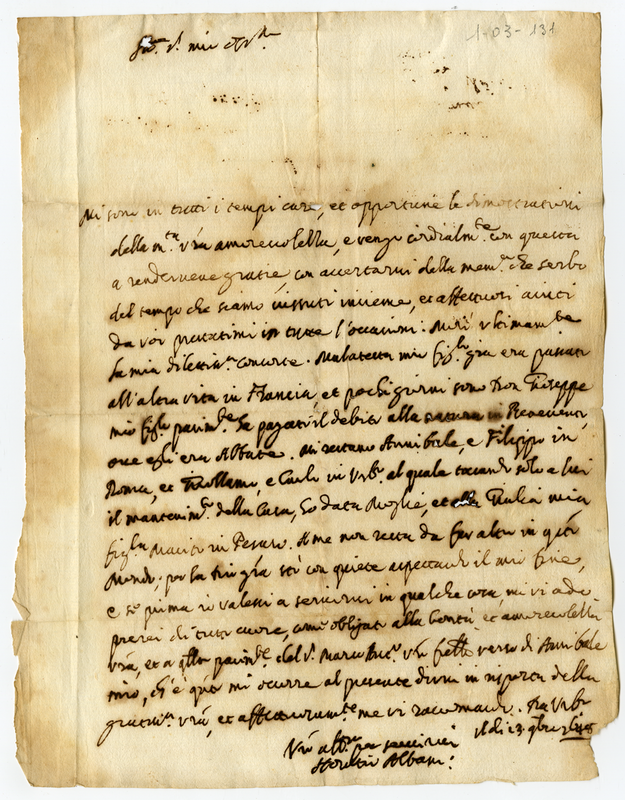 1-03-131
mio
Mi sono in tutti i tempi care, et opportune le dimostrationi
della m.ta vra amorevolezza, e vengo cordialm.te con questa
a rendervene gratie, con accertarvi della mem.a che serbo
del tempo che siamo vissuti insieme, et affettuosi
da voi in tutte l'occasioni. Morì ultimam.te
la mia dilettiss.a consorte. Malatesta mio fig.lo già era passato
all'altra vita in Francia, et pochi giorni sono Don Giuseppe
mio fig.lo parim.te ha pagato il debito alla natura in Benevento,
ove egli era Abbate. Mi restano Annibale, e Filippo in
Roma, et e Carlo in Urb.o al quale toccando solo a lui
il mantenim.to della Casa, ho data Moglie, et alla Giulia mia
fig.la Marito in Pesaro. A me non resta da far altro in q.to
Mondo, per la Dio gra sto con quiete aspettando il mio fine,
e se prima io valessi a servirvi in qualche cosa mi vi ado-
prerei di tutto cuore, come obligato alla bontà, et amorevolezza
vra, et a q.lla parim.te del S.r Marco vro fratello verso di Annibale
mio, ch'è q.to mi occorre al presente dirvi in risposta della
vra, et affettuosam.te me vi raccomando. Da Urb.o
il dì 23.
Vro per servirvi
Horatio Albani.